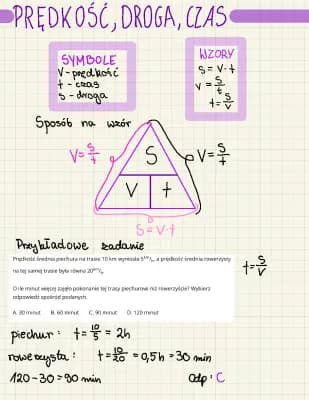 PRĘDKOŚĆ, DROGA, CZAS
SYMBOLE
V - prędkość
t - czas
s - droga
WZORY
S = V · t
V = s/t
t = s/v
Sposób na wzór
V = s/t
V = s/t
S
V
t
S = V · t
Przykładowe zadanie
Prędkość średnia piechura na trasie 10 km wyniosła 5 km/h, a prędkość średnia rowerzysty
na tej samej trasie była równa 20 km/h.
O ile minut więcej zajęło pokonanie tej trasy piechurowi niż rowerzyście? Wybierz
odpowiedź spośród podanych.
A. 30 minut B. 60 minut C. 90 minut D. 120 minut
t = s/v
piechur: t = 10/5 = 2h
rowerzysta: t = 10/20 = 0,5h = 30 min
120 - 30 = 90 min
Odp: C